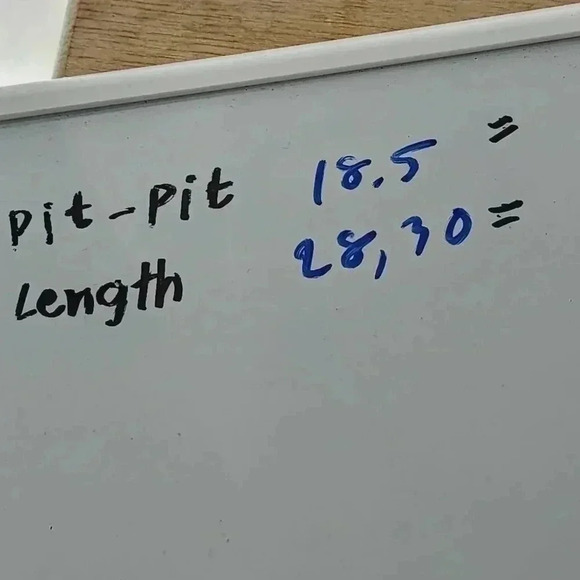 pit-pit 18.5 =
Length 28,30 =